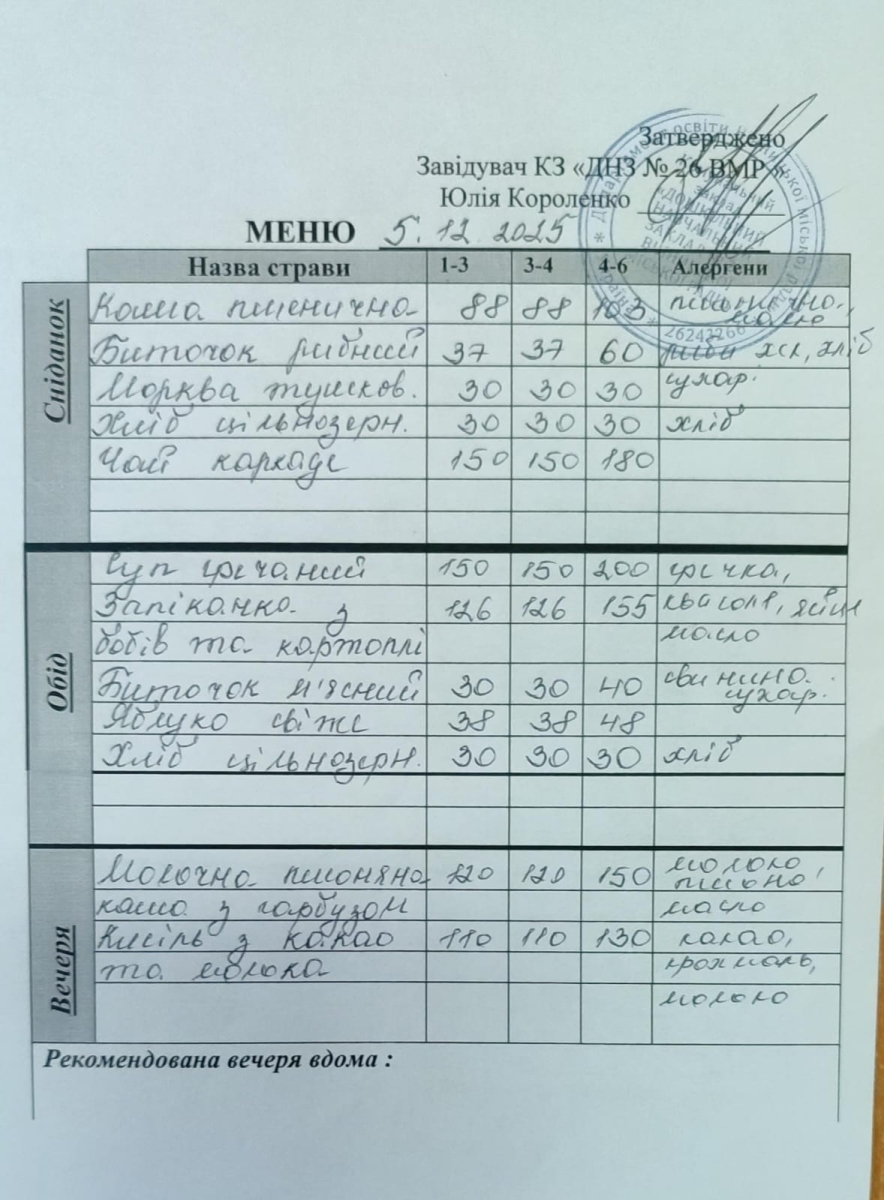 Затверджено
Завідувач КЗ «ДНЗ № 26 ВМР»
Юлія Короленко
МЕНЮ 5.12.2025
Назва страви 1-3 3-4 4-6 Алергени
Сніданок
Каша пшенична 88 88 103 пшенична, масло
Биточок рибний 37 37 60 риба хек, хліб
Морква тушков. 30 30 30 сухар.
Хліб цільнозерн. 30 30 30 хліб
Чай каркаде 150 150 180
Обід
Суп гречаний 150 150 200 гречка,
Запіканка з 126 126 155 квасоля, яйце
бобів та картоплі масло
Биточок м'ясний 30 30 40 свинина. сухар.
Яблуко свіже 38 38 48
Хліб цільнозерн. 30 30 30 хліб
Вечеря
Молочна пшоняна 120 120 150 молоко, пшоно,
каша з гарбузом масло
Кисіль з какао 110 110 130 какао,
та молока крохмаль,
молоко
Рекомендована вечеря вдома :